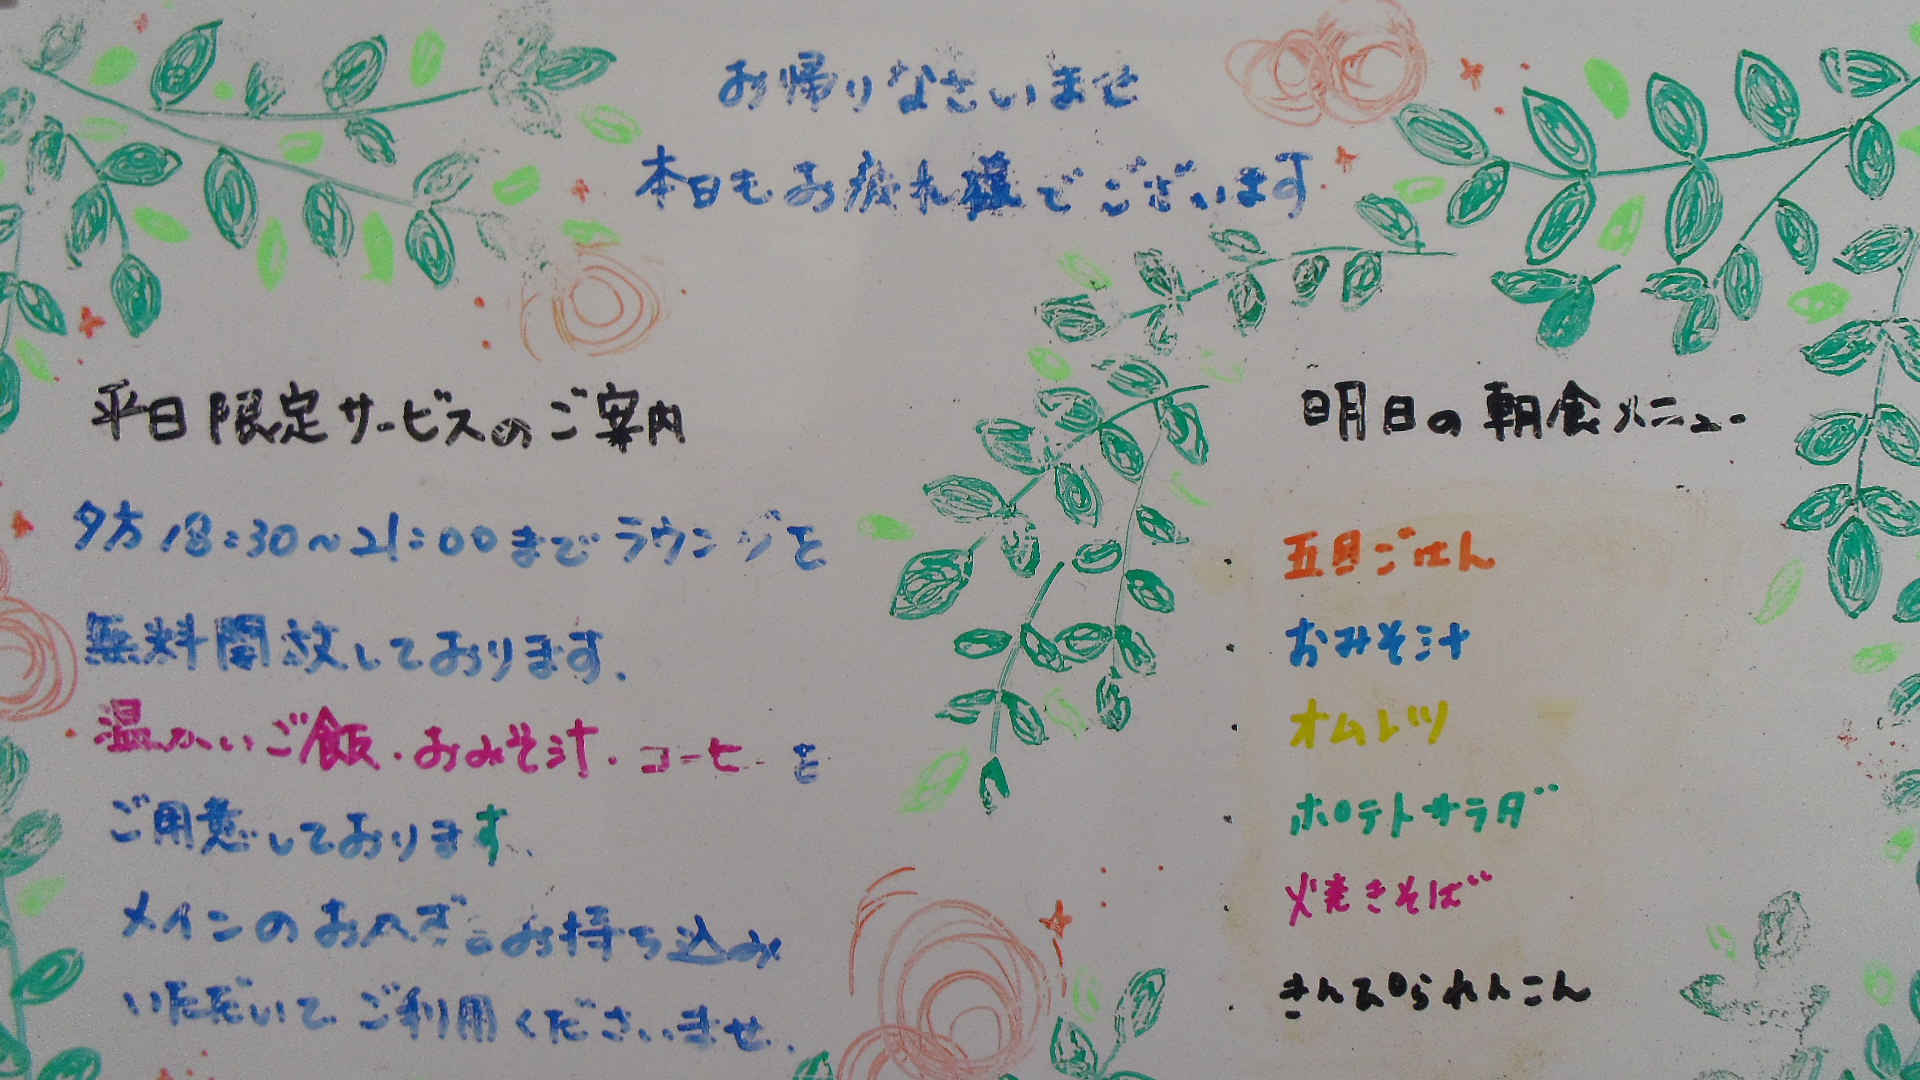 お帰りなさいませ
本日もお疲れ様でございます
平日限定サービスのご案内
夕方18:30～21:00までラウンジを
無料開放しております。
温かいご飯・おみそ汁・コーヒーを
ご用意しております。
メインのおかずはお持ち込み
いただいてご利用くださいませ。
明日の朝食メニュー
・五目ごはん
・おみそ汁
・オムレツ
・ポテトサラダ
・焼きそば
・きんぴられんこん